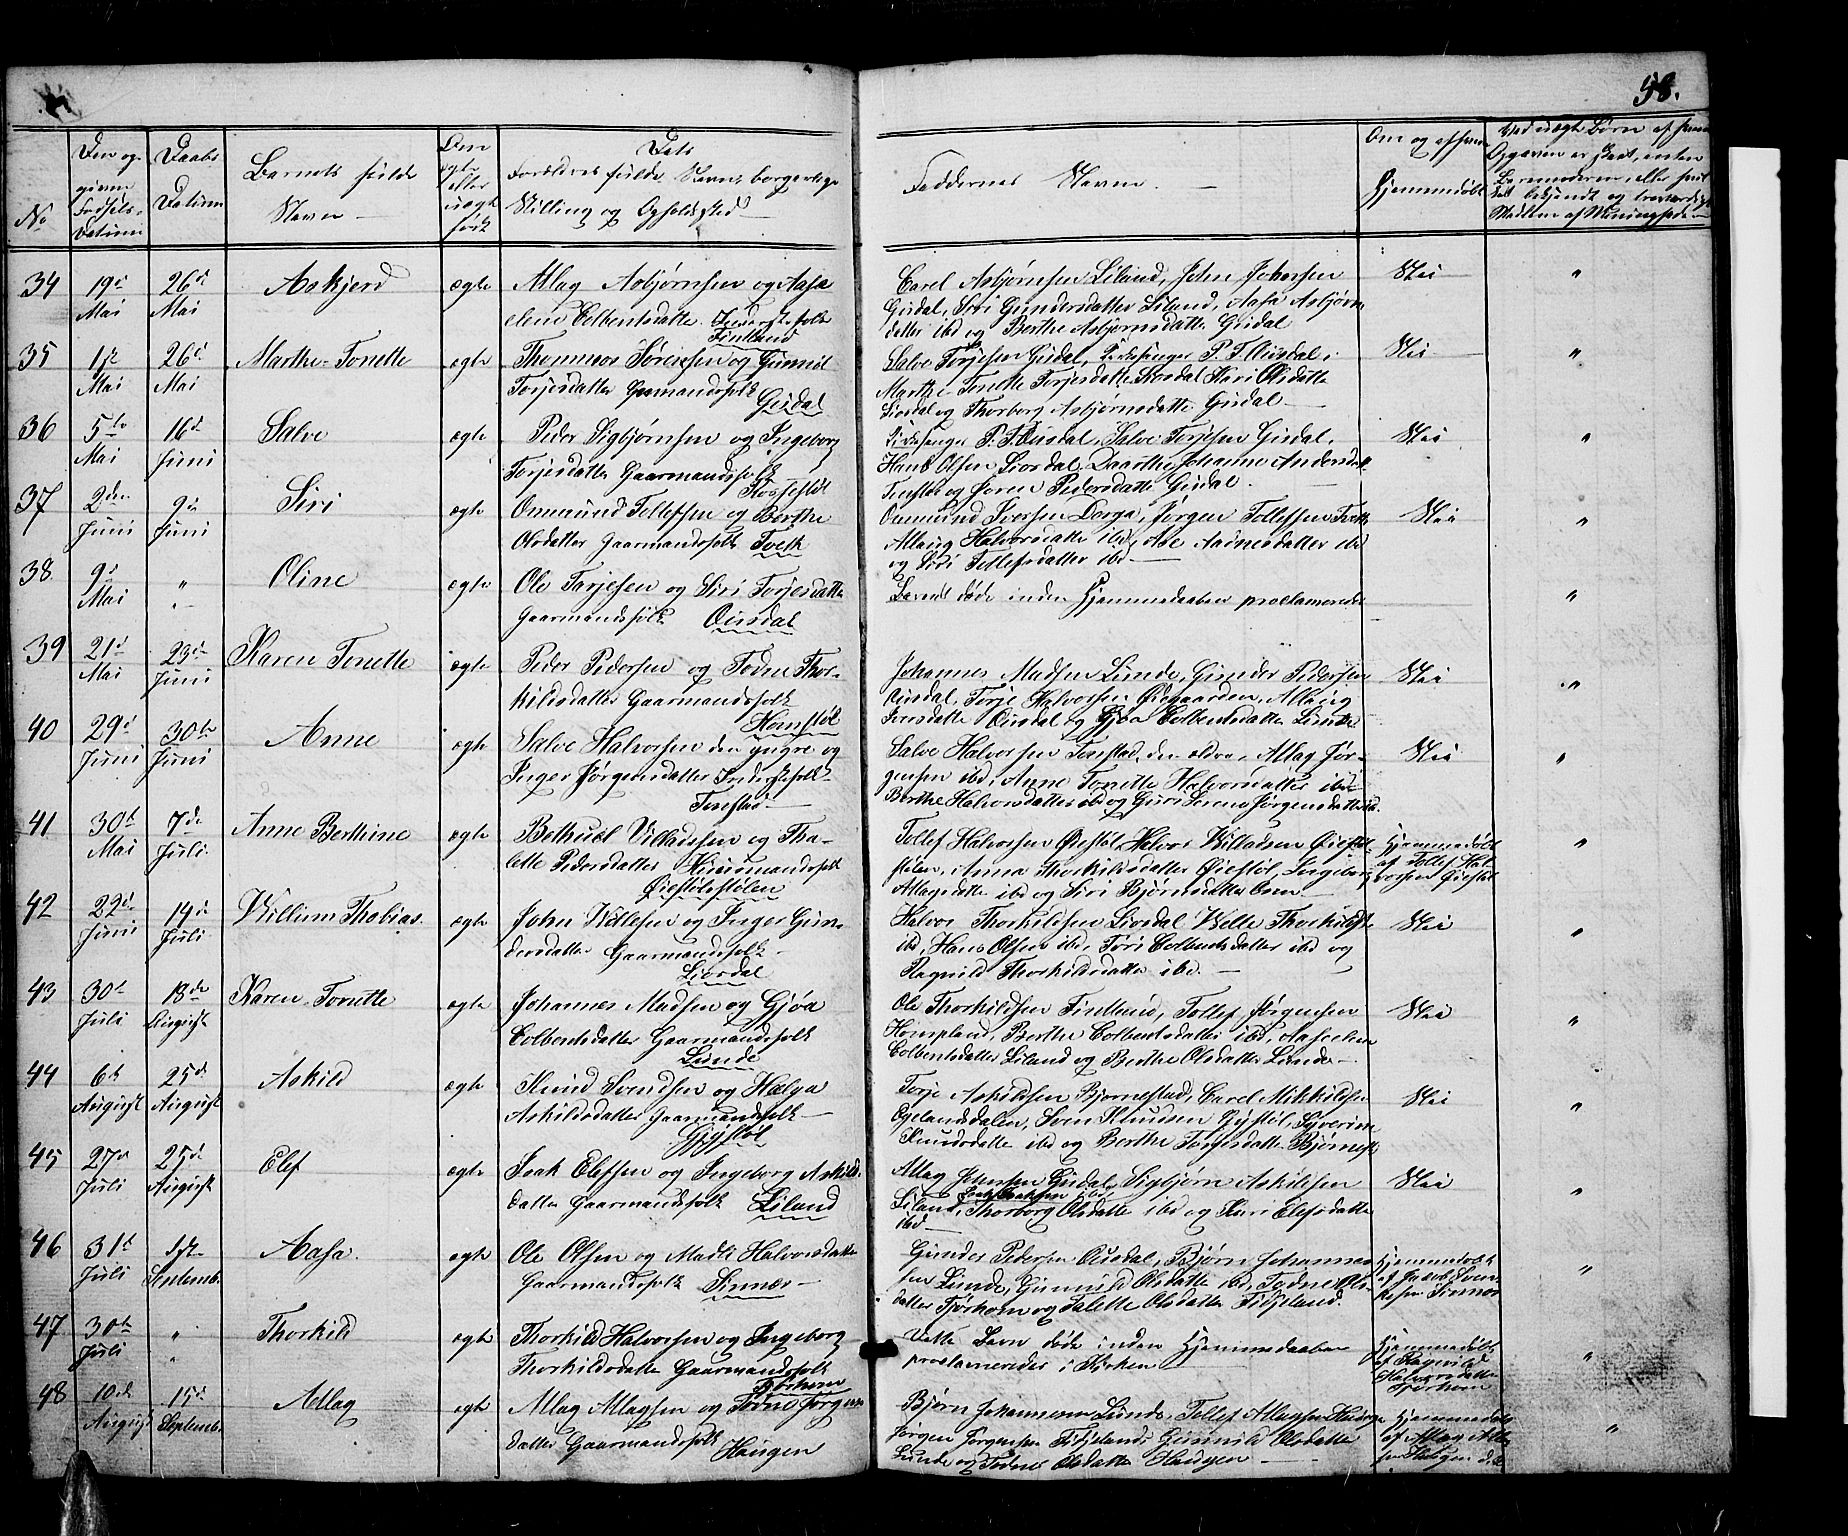 58.
No
Den og-
givne
Fødsels-
Datum
Daabs
Datum
Barnets fulde
Navn
Om
ægte
eller
uægte
født
Dets
Forældres fulde Navn, borgerlige
Stilling og Opholdsted
Faddernes Navne.
Om og af hvem
hjemmedøbt
Ved uægte Børn af hvem
Opgaven er skeet, enten
Barnmoderen, eller en
bekjendt og troværdig
Medlem af Menigheden
34 19d Mai 26d Mai Askjerd ægte Atlag Asbjørnsen og Aase
elene Colbentsdatter. Inderstefolk
Fintland
Carel Asbjørnsen Liland, John Johnsen
Gusdal, Siri Gundersdatter Liland, Aasa Asbjørns
datter ibd og Berthe Asbjørnsdatter Gusdal
Nei "
35 1ste Mai 26d Mai Marthe-Tonette ægte Thommas Sørensen og Gunnil
Torjesdatter Gaarmandsfolk
Gusdal
Salve Torjesen Gusdal, Kirkesanger P. T. Ousdal,
Marthe Tonette Torjesdatter Skordal Kari Olsdatter
Liordal og Thorborg Asbjørnsdatter Gusdal
Nei "
36 5te Mai 16d Juni Salve ægte Peder Sigbjørnsen og Ingeborg
Torjesdatter Gaarmandsfolk
Kirkesanger P. T. Ousdal, Salve Torjesen Gusdal,
Hans Olsen Liordal, Daarthe Johanne Andersdatt
og Søren Pedersdatter Gusdal.
Nei "
37 2den Juni 9d Juni Siri ægte Ommund Tollefsen og Berthe
Olsdatter Gaarmandsfolk Tveth
Ommund Iversen Dorga, Jørgen Tollefsen Tveth
Atlaug Halvorsdatter ibd, Ase Aanensdatter ibd
og Siri Tollefsdatter ibd
Nei "
38 9d Mai " Oline ægte Ole Tarjesen og Siri Torjesdatter
Gaarmandsfolk Ousdal
Barnet døde inden Hjemmedaaben proclameredes
"
39 21d Mai 23d Juni Karen Tonette ægte Peder Pedersen og Todne Thor-
kildsdatter Gaarmandsfolk
Homstøl
Johannes Madsen Lunde, Gunder Pedersen
Ousdal, Torje Halvorsen Ødegaarden, Atlaug
Iversdatter Ousdal og Gjøa Colbentsdatter Lunde
Nei "
40 29d Juni 30te Juni Anne ægte Salve Halvorsen den yngre og
Inger Jørgensdatter Inderstefolk
Tonstad
Salve Halvorsen Tonstad, den ældre, Atlag Jør-
gensen ibd, Anne Tonette Halvorsdatter ibd
Berthe Halvorsdatter ibd og Guri Serine Jørgensdatter ibd.
Nei "
41 30te Mai 7de Juli Anne Berthine ægte Bethuel Villadsen og Tha-
lette Pedersdatter Huusmandsfolk
Øiestølstølen
Tollef Halvorsen Øiestøl, Halvor Willadsen Øiestøl-
stølen, Anna Thorkildsdatter Øiestøl, Ingeborg
Atlagsdatter ibd og Siri Bjørnsdatter
Hjemmedøbt
af Tollef Hal-
vorsen Øiestøl
"
42 22d Juni 14de Juli Villum Thobias. ægte John Vellesen og Inger Gun-
dersdatter Gaarmandsfolk
Liordal
Halvor Thorkildsen Liordal Velle Thorkilds
ibd, Hans Olsen ibd, Tori Colbentsdatter ibd og
Ragnild Thorkildsdatter ibd.
Nei "
43 30te Juli 18de August Karen-Tonette ægte Johannes Madsen og Gjøa
Colbentsdatter Gaarmandsfolk
Lunde
Ole Thorkildsen Fintland, Tollef Jørgensen
Hompland, Berthe Colbentsdatter ibd, Aaseelene
Colbentsdatter Liland og Berthe Olsdatter Lunde
Nei "
44 6te August 25de August Askild ægte Knud Svendsen og Hælga
Askildsdatter Gaarmandsfolk
Torje Askildsen Bjørnestad, Carel Mikkelsen
Egelandsdalen, Sven Knudsen Gystøl, Syverine
Knudsdatter ibd og Berthe Torjesdatter Bjørnest
Nei "
45 27de Juli 25de August Elef ægte Isak Elefsen og Ingeborg Askilds
datter Gaarmandsfolk Liland
Atlag Johnsen Gusdal, Sigbjørn Askildsen
Liland, Thorborg Olsdatter ibd og Kari Elefsdatter
ibd
Nei "
46 31te Juli 1ste Septemb. Aasa. ægte Ole Olsen og Madli Halvorsdatter
Gaarmandsfolk Sinnes
Gunder Pedersen Ousdal, Bjørn Johannes-
sen Lunde, Gunnild Olsdatter ibd, Todne Ols-
datter Tjørhom og Talette Olsdatter Fidjeland.
Hjemmedøbt
af Jacob Sven-
Sinnes
"
47 30te Juli " Thorkild ægte Thorkild Halvorsen og Ingeborg
Thorkildsdatter Gaarmandsfolk
Tjørhom
Dette Barn døde inden Hjemmedaaben
proclameredes i Kirken
Hjemmedøbt
af Ragnild
Halvorsdatter
Tjørhom
"
48 10de August 15de Septemb. Atlag ægte Atlag Atlagsen og Todne Jørgens
datter Gaarmandsfolk
Haugen
Bjørn Johannesen Lunde, Tollef Atlagsen Haugen
Jørgen Jørgensen Fidjeland, Gunnild Olsdatter
Lunde og Todne Olsdatter Haugen
Hjemmedøbt
af Atlag Atlag
Haugen
"